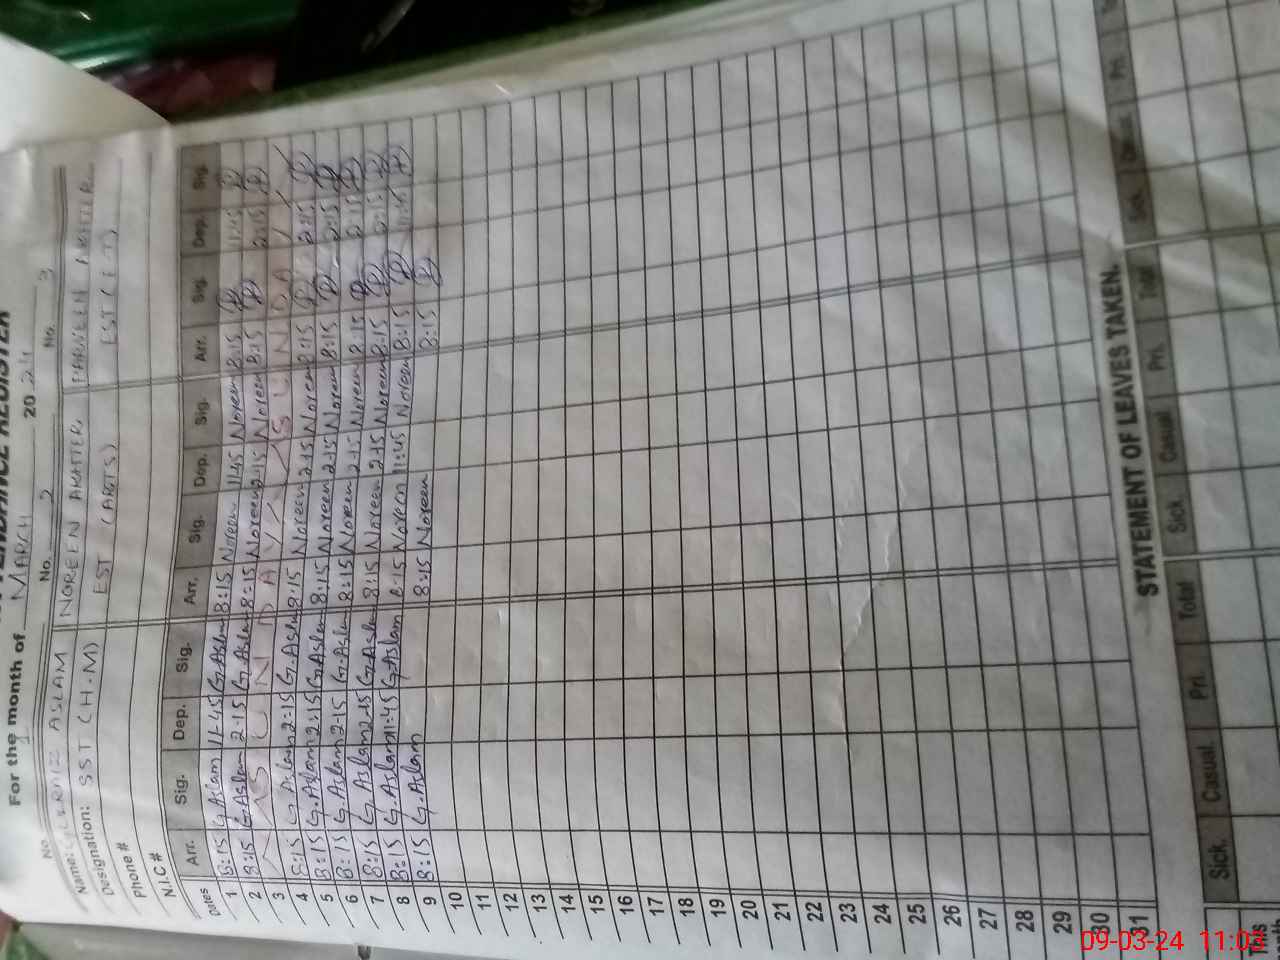 ATTENDANCE REGISTER
For the month of MARCH 20 24
No. 1 No. 2 No. 3
Name: GULRAIZ ASLAM NOREEN AKHTER PARVEEN AKHTER
Designation: SST (H.M) EST (ARTS) EST
Phone #
N.I.C #
Dates Arr. Sig. Dep. Sig. Arr. Sig. Dep. Sig. Arr. Sig. Dep. Sig.
1 8:15 G.Aslam 11:45 G.Aslam 8:15 Noreen 11:45 Noreen 8:15 11:45
2 8:15 G.Aslam 2:15 G.Aslam 8:15 Noreen 2:15 Noreen 8:15 2:15
3 SUNDAY SUNDAY
4 8:15 G.Aslam 2:15 G.Aslam 8:15 Noreen 2:15 Noreen 8:15 2:15
5 8:15 G.Aslam 2:15 G.Aslam 8:15 Noreen 2:15 Noreen 8:15 2:15
6 8:15 G.Aslam 2:15 G.Aslam 8:15 Noreen 2:15 Noreen 8:15 2:15
7 8:15 G.Aslam 2:15 G.Aslam 8:15 Noreen 2:15 Noreen 8:15 2:15
8 8:15 G.Aslam 11:45 G.Aslam 8:15 Noreen 11:45 Noreen 8:15 11:45
9 8:15 G.Aslam 8:15 Noreen 8:15
10
11
12
13
14
15
16
17
18
19
20
21
22
23
24
25
26
27
28
29
30
31
STATEMENT OF LEAVES TAKEN.
Sick. Casual. Pri. Total Sick Casual Pri. Total Sick. Pri.
This
09-03-24 11:03